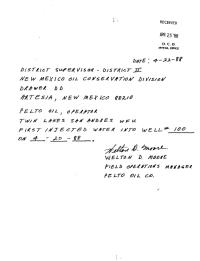 RECEIVED
APR 25 '88
O. C. D.
ARTESIA, OFFICE
DATE: 4-22-88
DISTRICT SUPERVISOR - DISTRICT II
NEW MEXICO OIL CONSERVATION DIVISION
DRAWER DD
ARTESIA, NEW MEXICO 88210
PELTO OIL, OPERATOR
TWIN LAKES SAN ANDRES WFU
FIRST INJECTED WATER INTO WELL # 100
ON 4-20-88.
Welton D. Moore
WELTON D MOORE
FIELD OPERATIONS MANAGER
PELTO OIL CO.